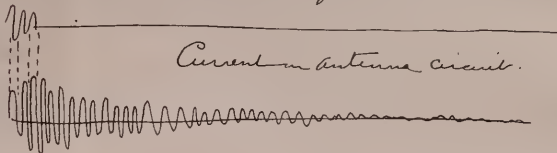 Current in antenna circuit.